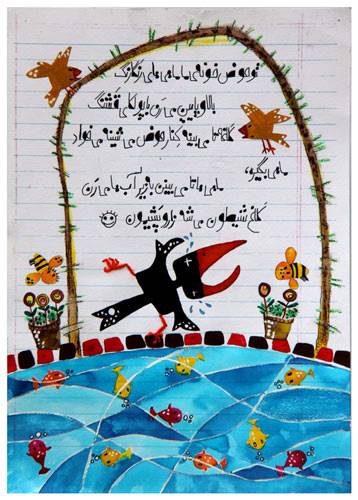 تو حوض خونه ما ماهی های رنگارنگ
بالا و پایین می رن با پولکای قشنگ
کلاغه تا می بینه کنار حوض می شینه می خواد
ماهی بگیره،
ماهی ها تا می بینن به زیر آب ها می رن
کلاغ شیطون می شه زار و پشیمون